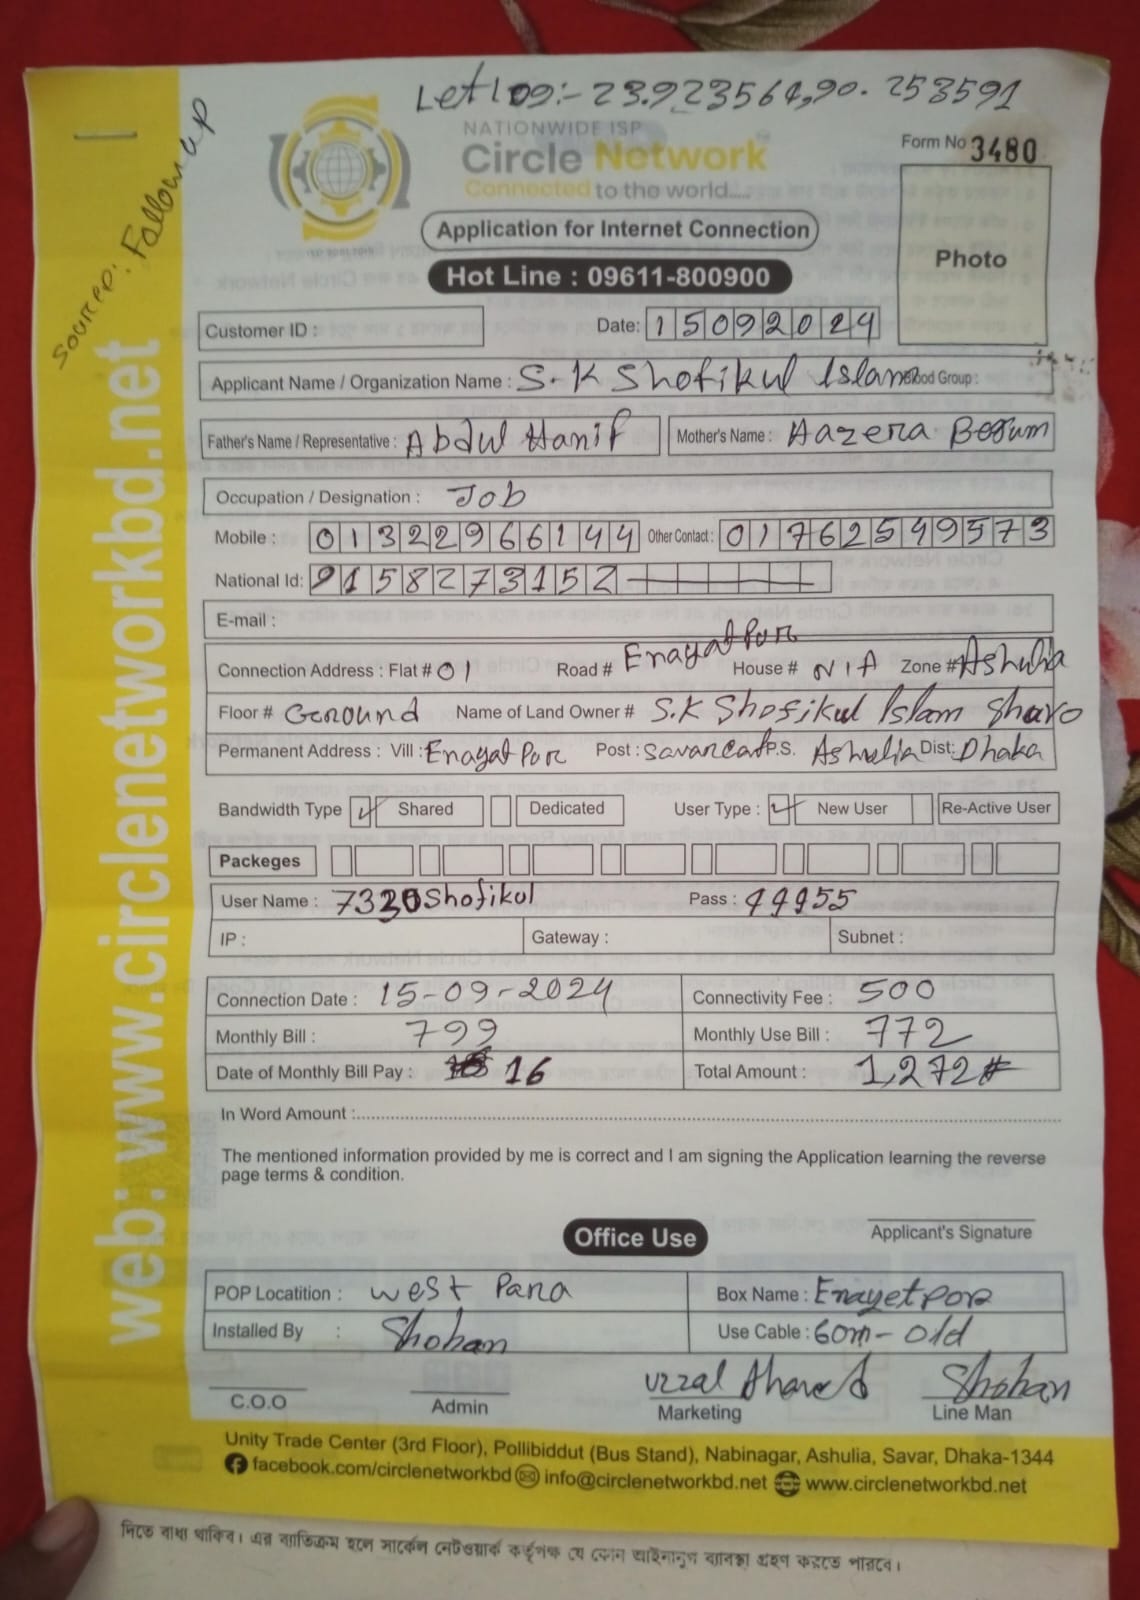 Let log:- 23.923564,90.253591
Source: Followup
NATIONWIDE ISP
Circle Network
Connected to the world.....
Form No 3480
Application for Internet Connection
Photo
Hot Line : 09611-800900
Customer ID :
Date: 15092024
Applicant Name / Organization Name : S.K Shofikul Islam Blood Group :
Father's Name / Representative : Abdul Hanif Mother's Name : Hazera Begum
Occupation / Designation : Job
Mobile : 01322966144 Other Contact : 01762549573
National Id: 9158273152
E-mail :
Connection Address : Flat # 01 Road # Enayatpur House # N/A Zone # Ashulia
Floor # Ground Name of Land Owner # S.K Shofikul Islam
Permanent Address : Vill : Enayatpur Post : P.S. Ashulia Dist: Dhaka
Bandwidth Type Shared Dedicated User Type : New User Re-Active User
Packeges
User Name : 7320Shofikul Pass : 44955
IP : Gateway : Subnet :
Connection Date : 15-09-2024 Connectivity Fee : 500
Monthly Bill : 799 Monthly Use Bill : 772
Date of Monthly Bill Pay : 16 Total Amount : 1,272#
In Word Amount :
The mentioned information provided by me is correct and I am signing the Application learning the reverse
page terms & condition.
Applicant's Signature
Office Use
POP Locatition : West Para Box Name : Enayetpor
Installed By : Shohan Use Cable : 60m- Old
Uzzal Shohan
C.O.O Admin Marketing Line Man
Unity Trade Center (3rd Floor), Pollibiddut (Bus Stand), Nabinagar, Ashulia, Savar, Dhaka-1344
facebook.com/circlenetworkbd info@circlenetworkbd.net www.circlenetworkbd.net
web: www.circlenetworkbd.net
দিতে বাধ্য থাকিব। এর ব্যতিক্রম হলে সার্কেল নেটওয়ার্ক কর্তৃপক্ষ যে কোন আইনানুগ ব্যবস্থা গ্রহণ করতে পারবে।